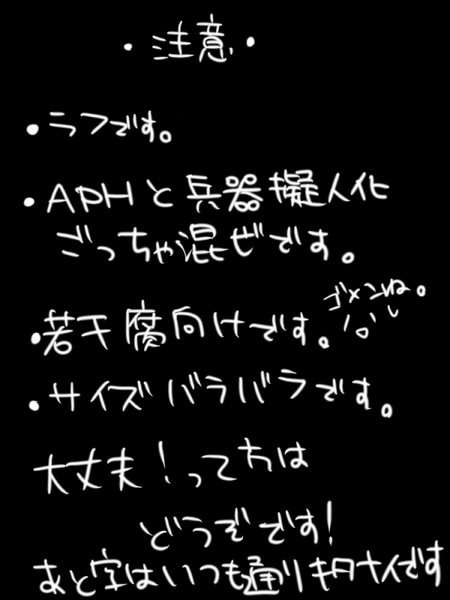 ・注意・
・ラフです。
・APHと兵器擬人化
ごっちゃ混ぜです。
・若干腐向けです。
ゴメンね。
・サイズバラバラです。
大丈夫!って方は
どうぞです!
あと字はいつも通りキタナイです